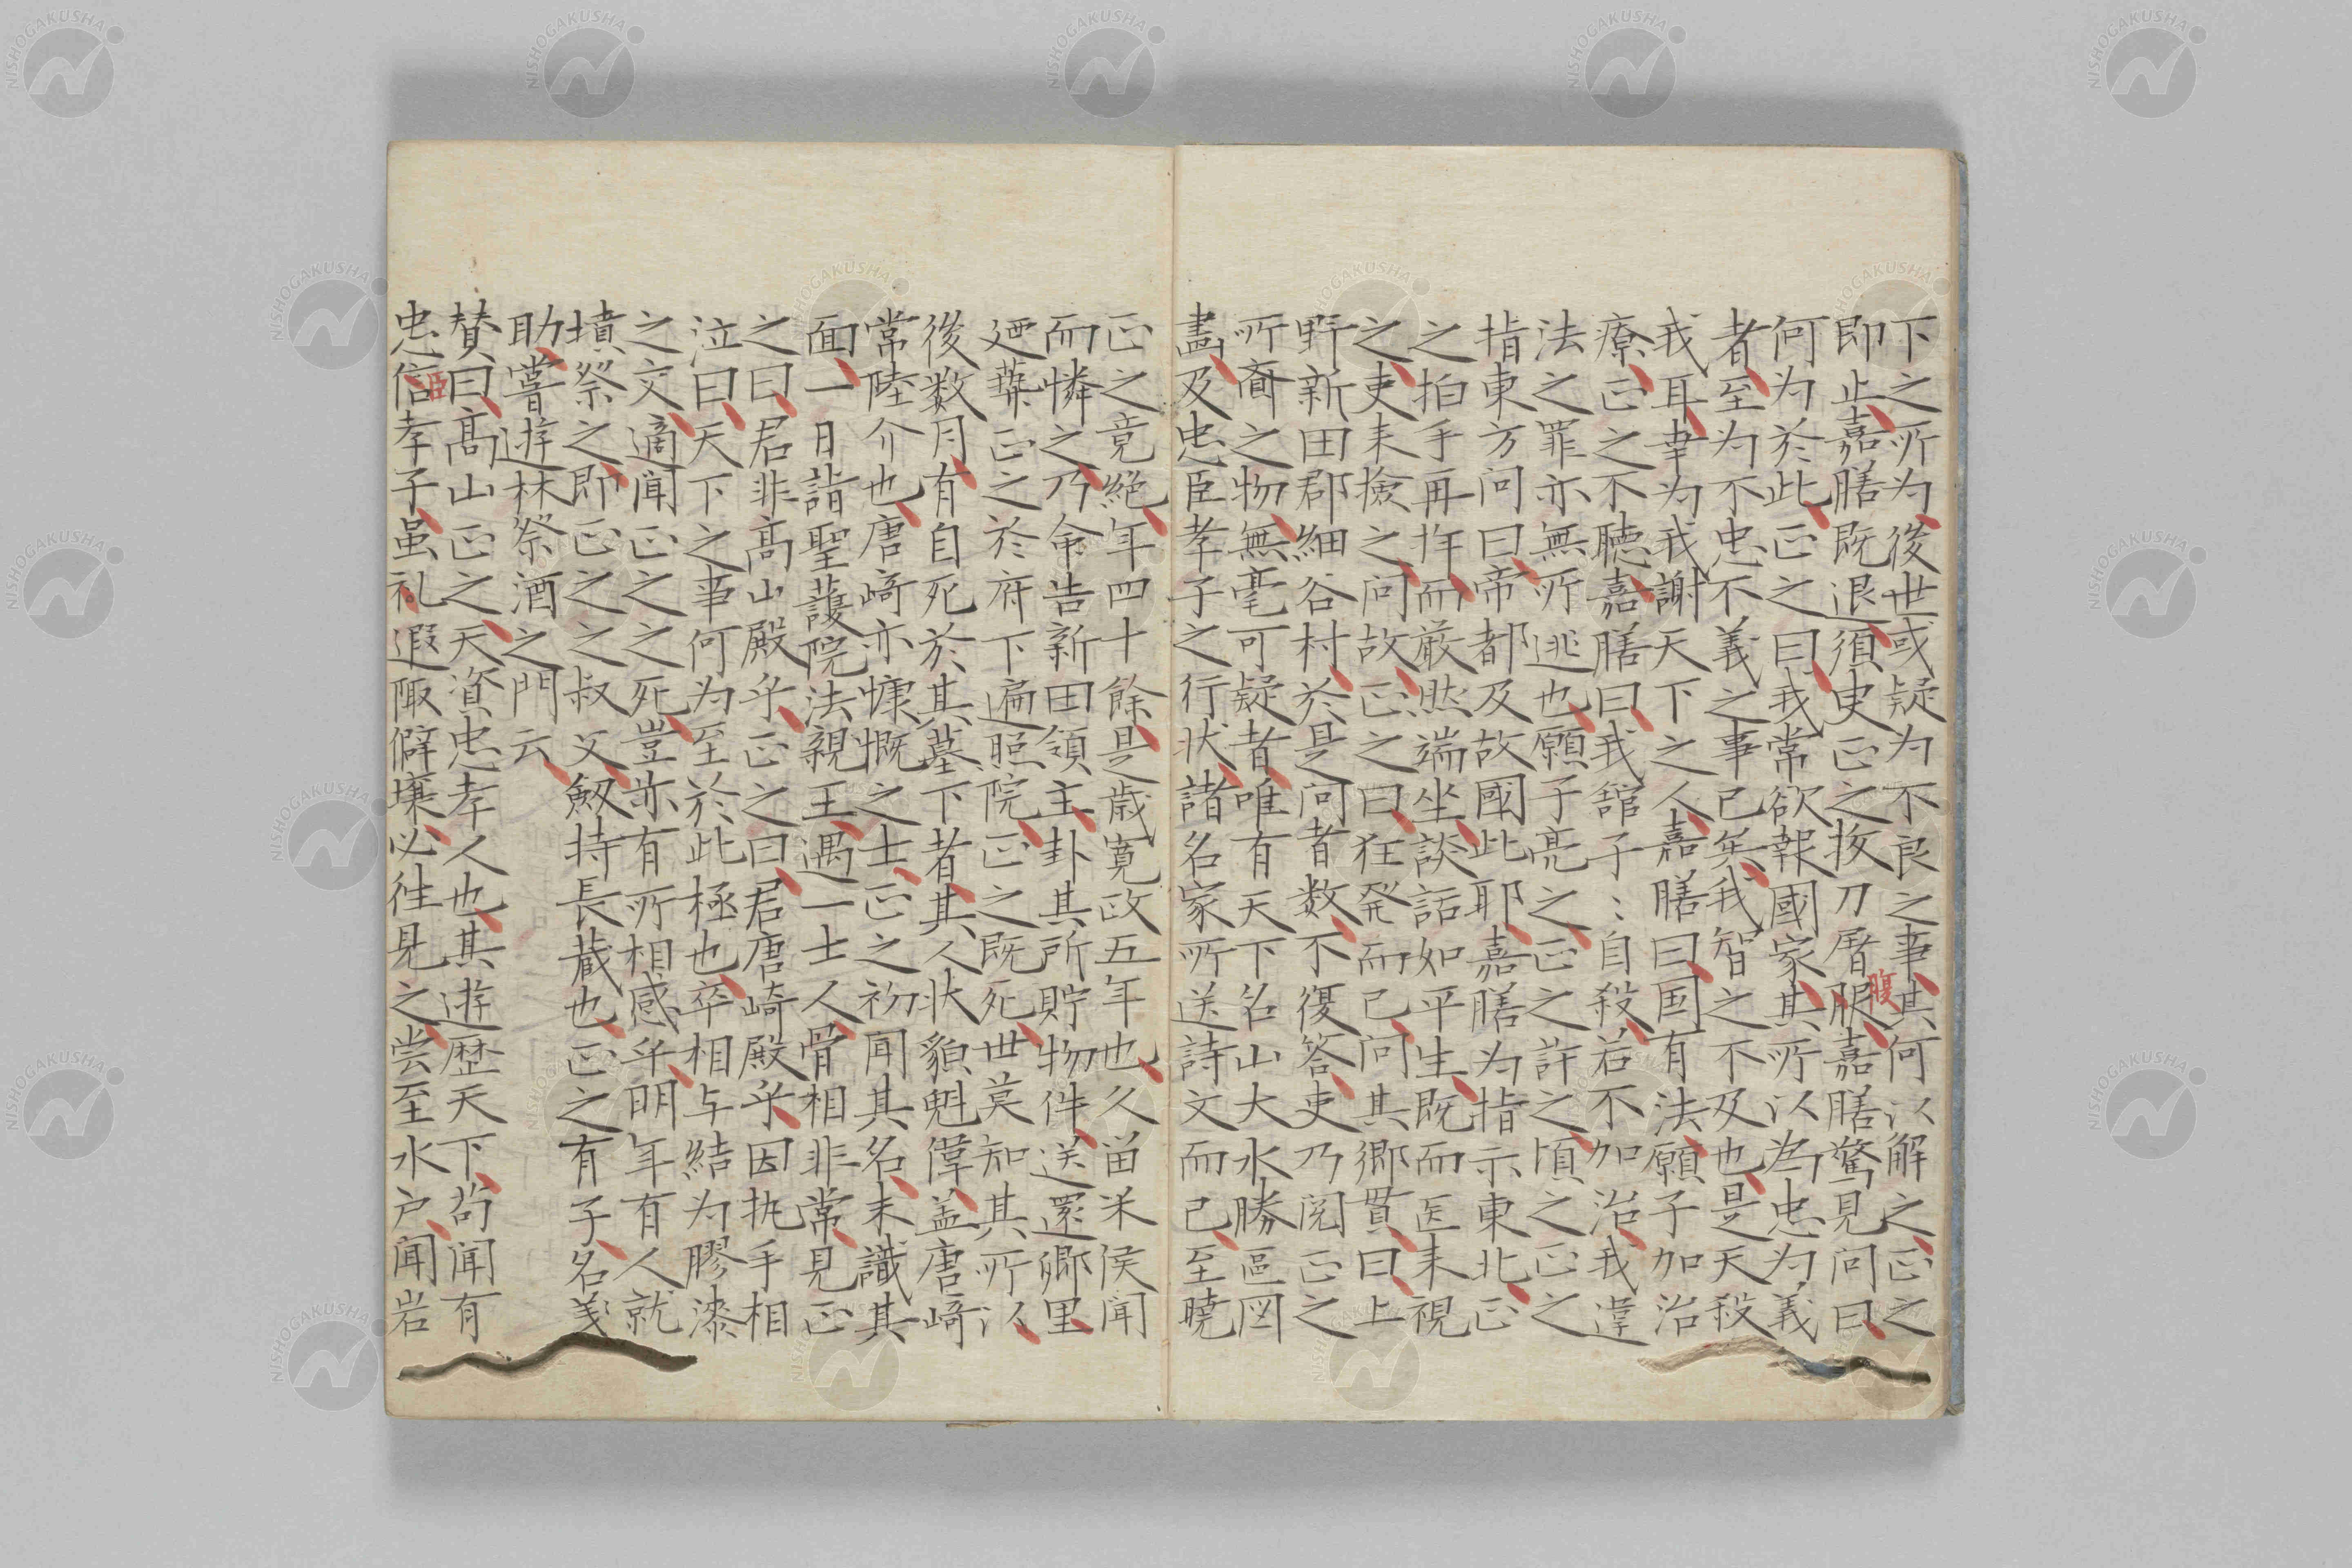 下之所为後世或疑为不良之事其何以解之正之
即止嘉膳既退須臾正之按刀屠腹嘉膳驚見问曰
何为於此正之曰我常欲報國家其所以為忠为義
者至为不忠不義之事已矣我智之不及也是天殺
我耳幸为我謝天下之人嘉膳曰国有法願子加治
療正之不聴嘉膳曰我舘子〻自殺若不加治我違
法之罪亦無所逃也願子亮之正之許之頃之正之
指東方问曰帝都及故國此耶嘉膳为指示東北正
之拍手再拜而厳然端坐談話如平生既而医来視
之吏来撿之问故正之曰狂発而已问其郷貫曰上
野新田郡細谷村於是问者数不復答吏乃閲正之
所齎之物無毫可疑者唯有天下名山大水勝區図
畵及忠臣孝子之行状諸名家所送詩文而已至曉
正之竟絶年四十餘是歳寛政五年也久留米侯闻
而憐之乃命告新田領主卦其所貯物件送還郷里
迺葬正之於府下遍照院正之既死世莫知其所以
後数月有自死於其墓下者其人状貌魁偉盖唐崎
常陸介也唐崎亦慷慨之士正之初闻其名未識其
面一日詣聖護院法親王遇一士人骨相非常見正
之曰君非高山殿乎正之曰君唐崎殿乎因执手相
泣曰天下之事何为至於此極也卒相与結为膠漆
之交適闻正之之死豈亦有所相感乎明年有人就
墳祭之即正之之叔父剱持長蔵也正之有子名義
助嘗遊林祭酒之門云
賛曰高山正之天資忠孝人也其遊歴天下苟闻有
忠信臣孝子虽礼遐陬僻壤必徃見之尝至水户闻岩